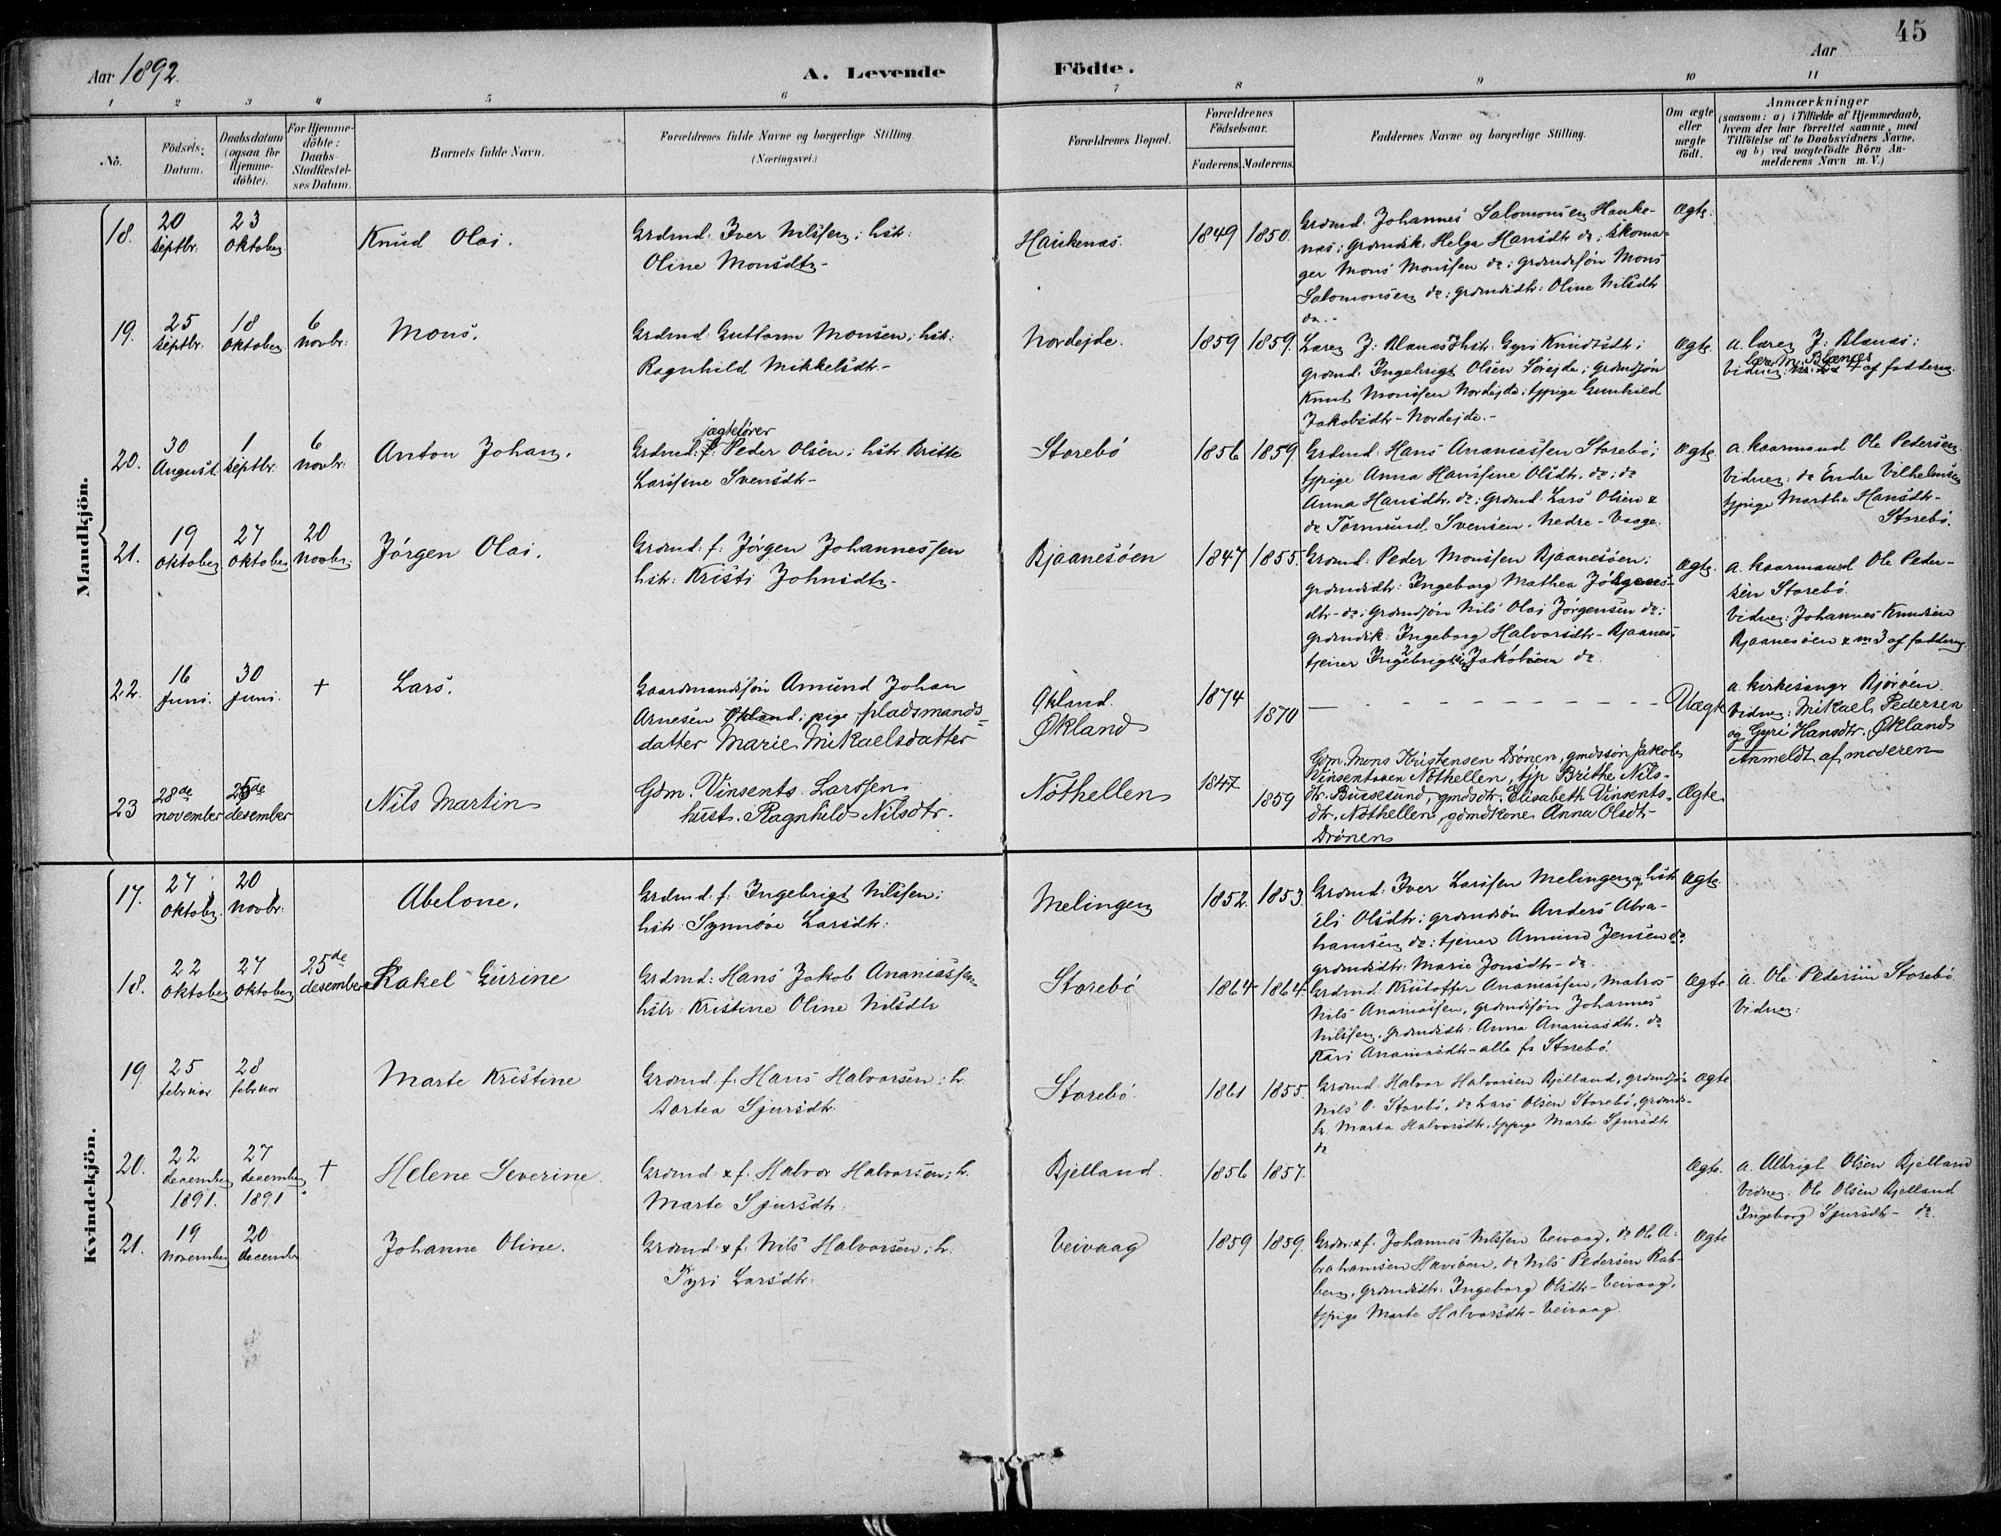 45
Aar 1892.
A. Levende
Födte.
Aar
1 2 3 4 5 6 7 8 9 10 11
No.
Födsels-
Datum.
Daabsdatum
(ogsaa for
Hjemme-
döbte).
For Hjemme-
döbte:
Daabs-
Stadfæstel-
ses Datum.
Barnets fulde Navn.
Forældrenes fulde Navne og borgerlige Stilling.
(Næringsvei.)
Forældrenes Bopæl.
Forældrenes
Födselsaar.
Faderens. Moderens.
Faddernes Navne og borgerlige Stilling.
Om ægte
eller
uægte
födt.
Anmærkninger
(saasom: a) i Tilfælde af Hjemmedaab,
hvem der har forrettet samme, med
Tilföielse af to Daabsvidners Navne.
og b) ved uægtefödte Börn An-
melderens Navn m. V.)
Mandkjön.
18.
20
septbr.
23
oktober
Knud Olai.
Grdmd: Iver Nilssen; hst:
Oline Monsdtr-
Haukenæs.
1849 1850.
Grdmd. Johannes Salomonsen Hauke-
næs; grdmdsk. Helga Hansdtr do; skoma-
ger Mons Monssen do; grdmdssön Mons
Salomonsen do; grdmdsdtr: Oline Nilsdtr
do.-
Ægte.
19.
25
septbr.
18
oktober
6
novbr:
Mons.
Grdmd: Guttorm Monsen; hst:
Ragnhild Mikkelsdtr-
Nordejde.
1859 1859.
Lærer J. Blanæs; hst. Gyri Knudtsdtr;
grdmd. Ingebrigt Olsen Sörejde; grdmdsön
Knut Monssen Nordejde; tjpige Gunhild
Jakobsdtr-Nordejde.-
Ægte.
a. lærer J. Blanæs;
20.
30
August.
1
septbr.
6
novbr:
Anton Johan.
jagtefører
Grdmd: f. Peder Olsen; hstr Britte
Larssine Svensdtr-
Storebö
1856 1859
Grdmd: Hans Ananiassen Storebö;
tjpige Anna Hanssine Olsdtr. do; do
Anna Hansdtr. do; grdmd: Lars Olsen &
do Tormund Svensen. Nedre-Vaage.
Ægte
a. kaarmand Ole Pedersen.
Vidner: do Endre Vilhelmsen
tjpige Marthe Hansdtr-
Storebö.
21.
19
oktober
27
oktober
20
novbr:
Jørgen Olai.
Grdmd: f: Jørgen Johannessen
hst: Kristi Johnsdtr-
Bjaanesöen
1847 1855.
Grdmd: Peder Monssen Bjaanesöen;
grdmdsdtr: Ingeborg Mathea Jörgens-
dtr-do; grdmdsön Nils Olai Jørgensen do;
grdmdsk: Ingeborg Halvorsdtr-Bjaanes.
tjener Ingebrigt Jakobsen do.
Ægte.
a. kaarmand Ole Peder-
sen Storebö.
Vidner: Johannes Knudsen
Bjaanesöen & m 3 af faddern.
22.
16
Juni.
30
Juni.
+
Lars.
Gaardmandssön Amund Johan
Arnesen Økland; pige, pladsmands-
datter Marie Mikaelsdatter
Økland.
Økland
1874
1870
Uægte
a. kirkesangr Bjørøen.
Vidner: Mikael Pedersen
og Gyri Hansdtr. Økland
Anmeldt af moderen
23
28de
november
25de
desember
Nils Martin
Gdm. Vinsents. Larssen
hust. Ragnhild Nilsdtr.
Nöthellen
1847
1859
Gdm Mons Kristensen Drönen, gmdssön Jakob
Vinsentssen Nöthellen, tjp Brithe Nils-
dtr. Buesesund, gmdsdtr. Elisabeth Vinsents-
dtr. Nöthellen, gdmdkone Anna Olsdtr
Drönen
Ægte
Kvindekjön.
17.
27
oktober.
20
novbr:
Abelone.
Grdmd: f: Ingebrigt Nilssen;
hst: Synnöve Larsdtr:
Melingen
1852. 1853.
Grdmd: Iver Larssen Melingen og hst:
Eli Olsdtr; grdmdsön Anders Abra-
hamsen do; tjener Amund Jensen do.
grdmdsdtr: Marie Jonsdtr-do.
Ægte.
18.
22
oktober
27
oktober
25de
desember
Rakel Gurine
Grdmd: Hans Jakob Ananiassen
hstr: Kristine Oline Nilsdtr
Storebö
1864-1864-
Grdmd: Kristoffer Ananiassen, matros
Nils Ananiassen, grdmdssön Johannes
Nilssen, grdmdsdtr: Anna Ananiasdtr. do
Kari Ananiasdtr-alle fr Storebö.
Ægte
a. Ole Pedersen Storebö
Vidner:
19.
25
februar
28
februar
Marte Kristine
Grdmd. f. Hans Halvorsen; h.
Aartea Sjursdtr.
Storebö.
1861 1855.
Grdmd. Halvor Halvorsen Bjelland, grdmdsön
Nils O. Storebö, do Lars Olsen Storebö, grdmds-
k. Marta Halvorsdtr. tjpige Marte Sjursdtr
do
Ægte
20.
22
december
1891.
27
december
1891.
+
Helene Severine.
Grdmd & f. Halvor Halvorsen; h.
Marte Sjursdtr:
Bjelland.
1856 1857.
Ægte.
a. Albrigt Olsen Bjelland
Vidner. Ole Olsen Bjelland
Ingeborg Sjursdtr- do.
21.
19
november
20
december
Johanne Oline.
Grdmd & f. Nils Halvorsen; h.
Pyri Larsdtr.
Veivaag
1859 1859.
Grdm. & f. Johannes Nilssen Veivaag, do Ole A-
brahamsen Havröen, do Nils Pedersen Rab-
ben, grdmdsdtr: Ingeborg Olsdtr-Veivaag,
tjpige Marte Halvorsdtr-Veivaag
Ægte